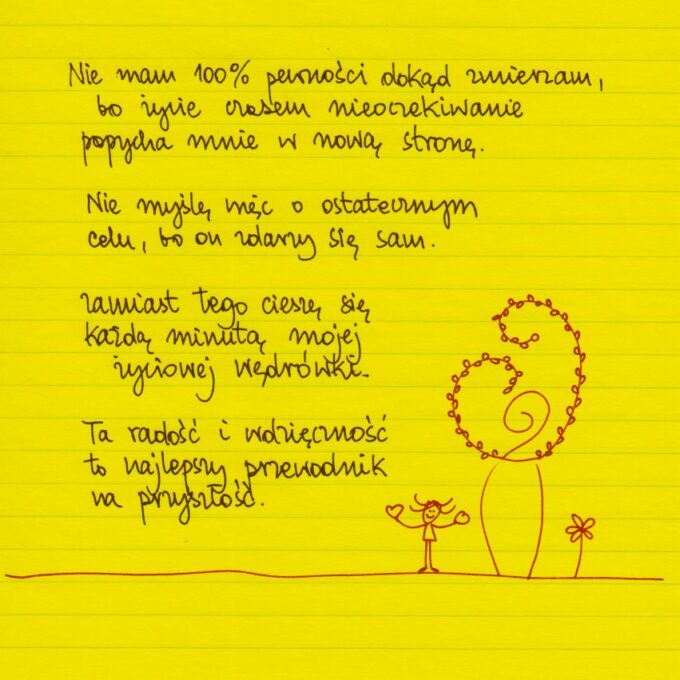 Nie mam 100% pewności dokąd zmierzam,
bo życie czasem nieoczekiwanie
popycha mnie w nową stronę.
Nie myślę więc o ostatecznym
celu, bo on zdarzy się sam.
zamiast tego cieszę się
każdą minutą mojej
życiowej wędrówki.
Ta radość i wdzięczność
to najlepszy przewodnik
na przyszłość.